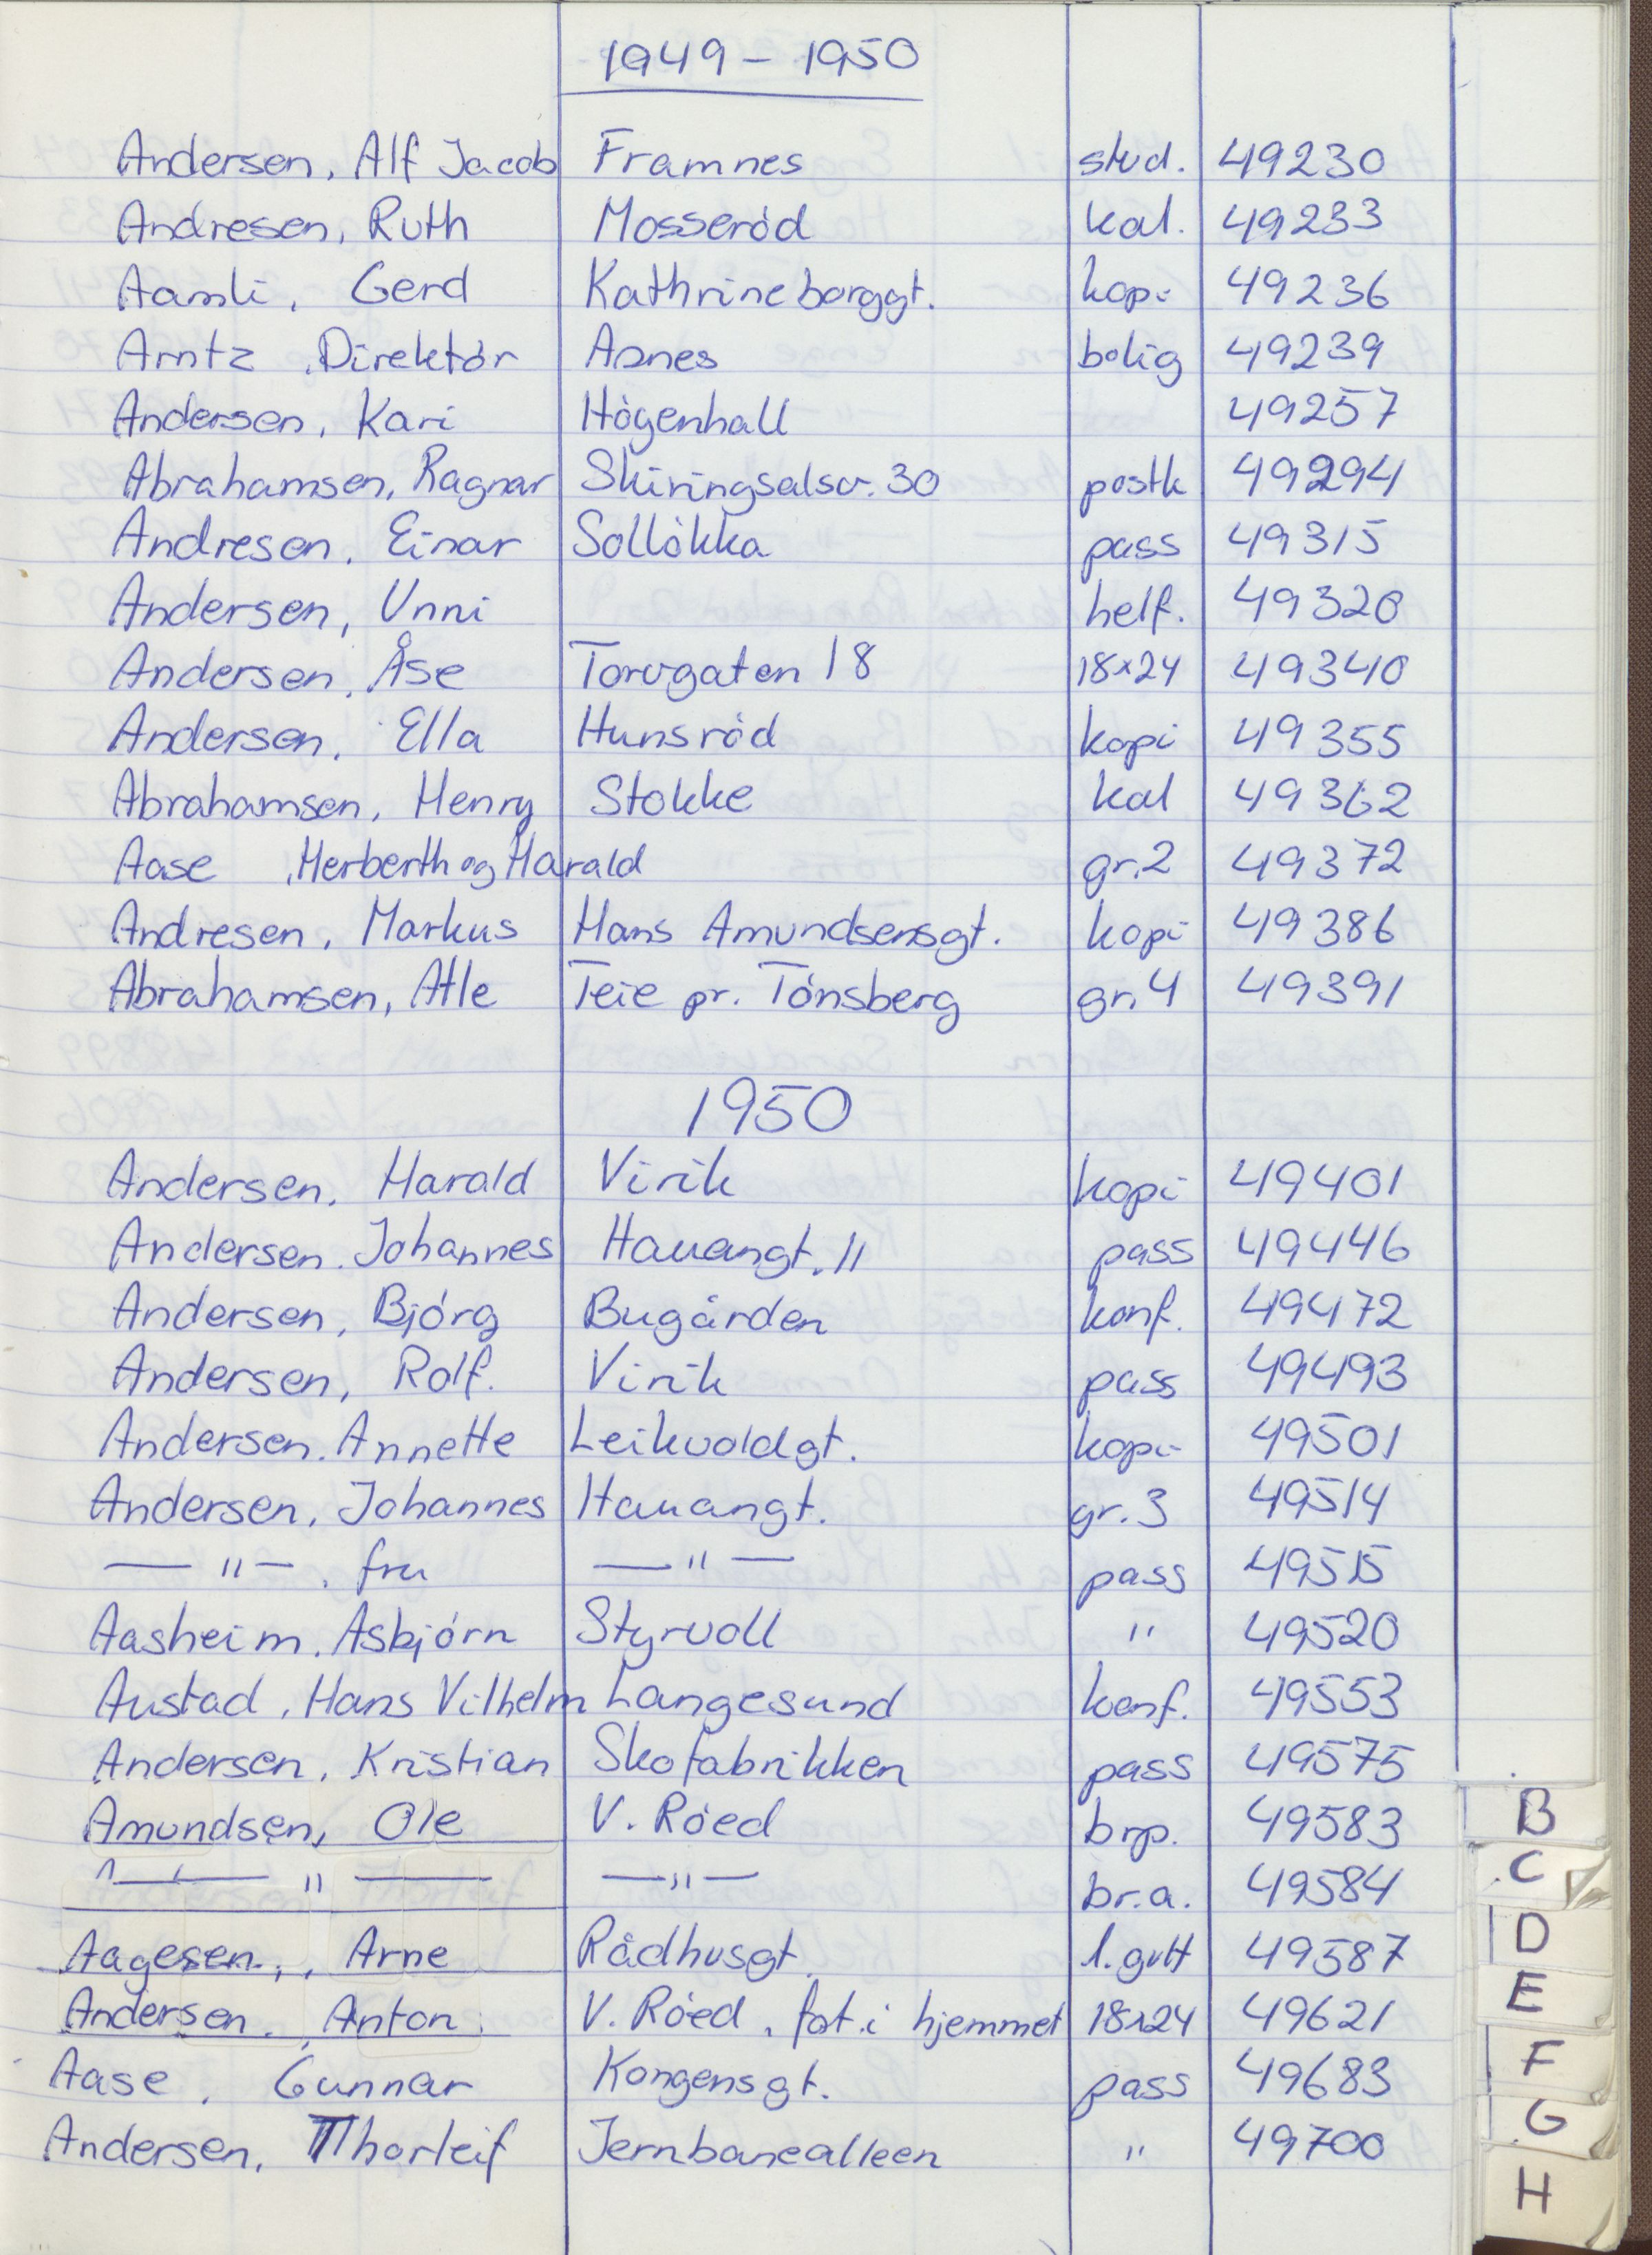 1949 - 1950
Andersen, Alf Jacob Framnes stud. 49230
Andresen, Ruth Mosseród kal. 49233
Aamli, Gerd Kathrineborggt. kopi 49236
Arntz, Direktór Asnes bolig 49239
Andersen, Kari Hógenhall 49257
Abrahamsen, Ragnar Skiringsalsv. 30 postk 49294
Andresen, Einar Sollókka pass 49315
Andersen, Unni helf. 49320
Andersen, Åse Torvgaten 18 18x24 49340
Andersen, Ella Hunsród kopi 49355
Abrahamsen, Henry Stokke kal 49362
Aase, Herberth og Harald gr.2 49372
Andresen, Markus Hans Amundsensgt. kopi 49386
Abrahamsen, Atle Teie pr. Tónsberg gr.4 49391
1950
Andersen, Harald Virik kopi 49401
Andersen. Johannes Hauangt. 11 pass 49446
Andersen, Bjórg Bugården konf. 49472
Andersen, Rolf. Virik pass 49493
Andersen. Annette Leikvoldgt. kopi 49501
Andersen, Johannes Hauangt. gr.3 49514
— " —, fru — " — pass 49515
Aasheim. Asbjórn Styrvoll " 49520
Austad, Hans Vilhelm Langesund konf. 49553
Andersen, Kristian Skofabrikken pass 49575
Amundsen, Ole V. Róed brp. 49583
— " — — " — br.a. 49584
Aagesen, Arne Rådhusgt. 1. gutt 49587
Andersen, Anton V. Róed, fot. i hjemmet 18x24 49621
Aase, Gunnar Kongensgt. pass 49683
Andersen, Thorleif Jernbanealleen " 49700
B
C
D
E
F
G
H